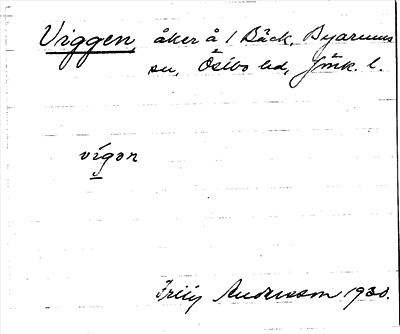 Viggen, åker å 1 Bäck, Byarums
sn, Östbo hd, Jönk. l.
vigən
Andersson 1930.